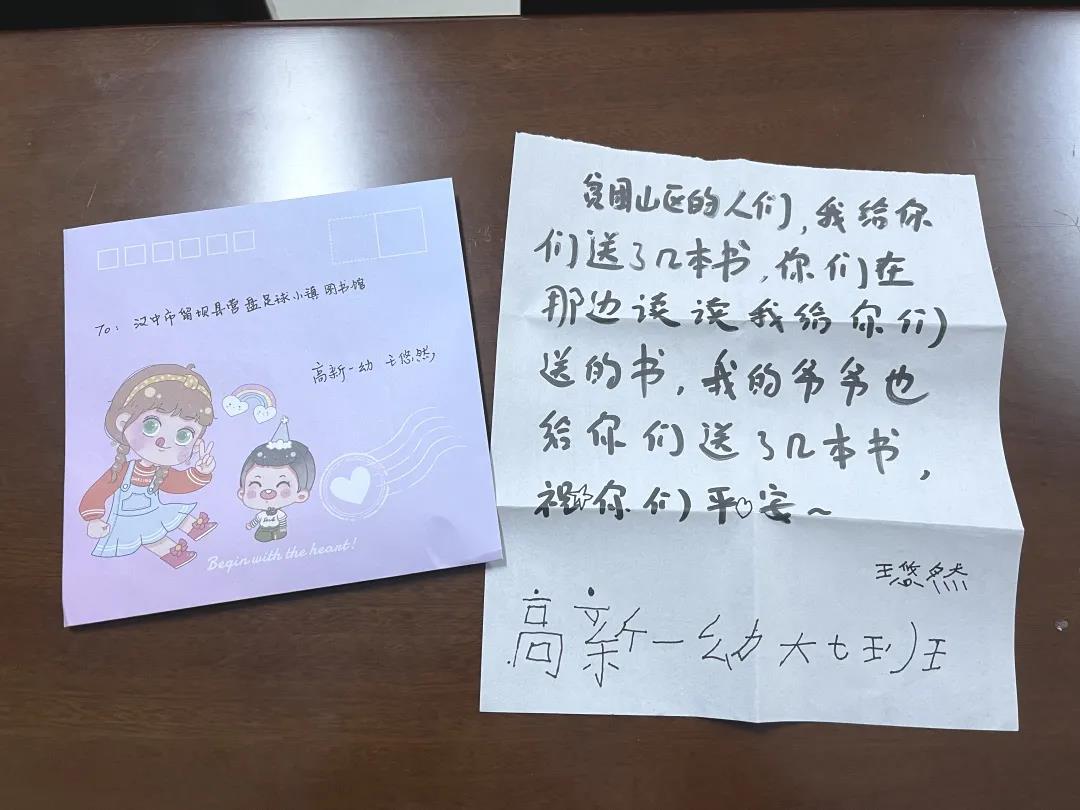 To: 汉中市留坝县营盘足球小镇图书馆
高新一幼 王悠然
Begin with the heart!
贫困山区的人们,我给你
们送了几本书,你们在
那边读读我给你们
送的书,我的爷爷也
给你们送了几本书,
祝你们平安~
王悠然
高新一幼大七班